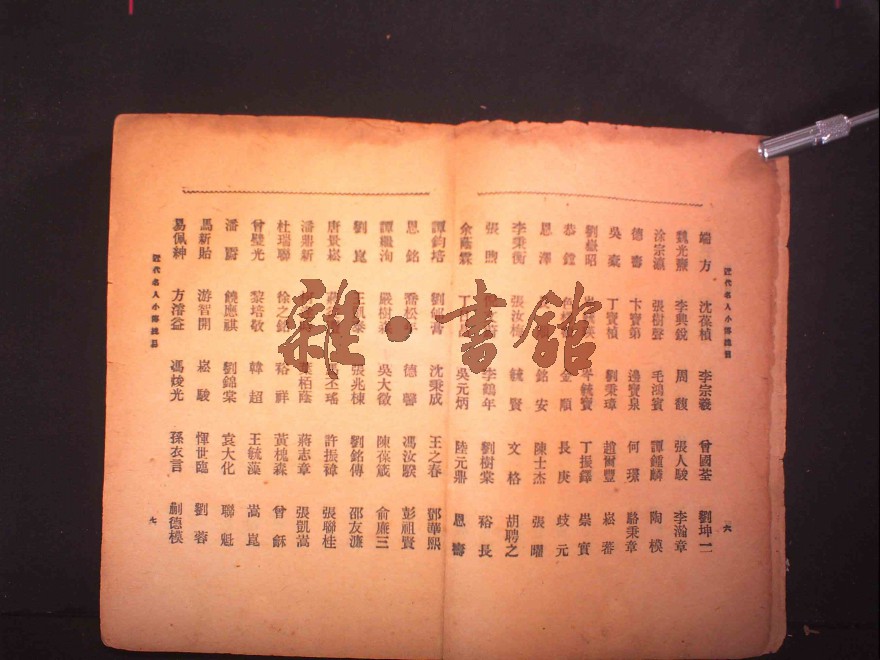 近代名人小傳總目
六
端方 沈葆楨 李宗羲 曾國荃 劉坤一
魏光燾 李興銳 周馥 張人駿 李瀚章
涂宗瀛 張樹聲 毛鴻賓 譚鍾麟 陶模
德壽 卞寶第 邊寶泉 何璟 駱秉章
吳棠 丁寶楨 劉秉璋 趙爾豐 崧蕃
劉嶽昭 岑毓寶 丁振鐸 崇實
恭鏜 金順 長庚 歧元
恩澤 銘安 陳士杰 張曜
李秉衡 張汝梅 毓賢 文格 胡聘之
張煦 李鶴年 劉樹棠 裕長
余蔭霖 丁 吳元炳 陸元鼎 恩壽
譚鈞培 劉 沈秉成 王之春 鄧華熙
恩銘 喬松 德馨 馮汝騤 彭祖賢
譚繼洵 嚴樹 吳大澂 陳葆箴 俞廉三
劉崑 王 張兆棟 劉銘傳 邵友濂
唐景崧 丕瑤 許振褘 張聯桂
潘鼎新 葉栢蔭 蔣志章 張凱嵩
杜瑞聯 徐之銘 裕祥 黃槐森 曾龢
曾璧光 黎培敬 韓超 王毓藻 嵩崑
潘霨 饒應祺 劉錦棠 袁大化 聯魁
馬新貽 游智開 崧駿 惲世臨 劉蓉
易佩紳 方濬益 馮焌光 孫衣言 蒯德模
近代名人小傳總目
七
雜・書館